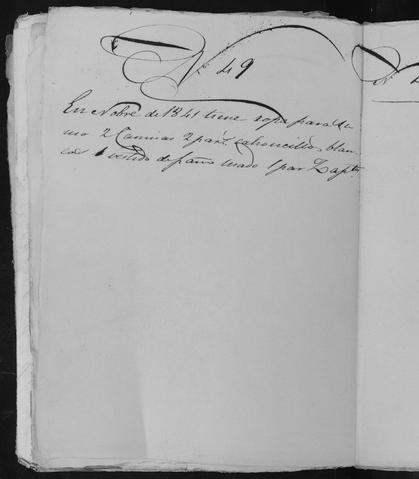 Nº 49
En Nobre de 1841 tiene ropa para su
uso 2 Camisas 2 par. calsoncillos blan
cos 1 vestido de paño usado 1 par Zapts
Nº